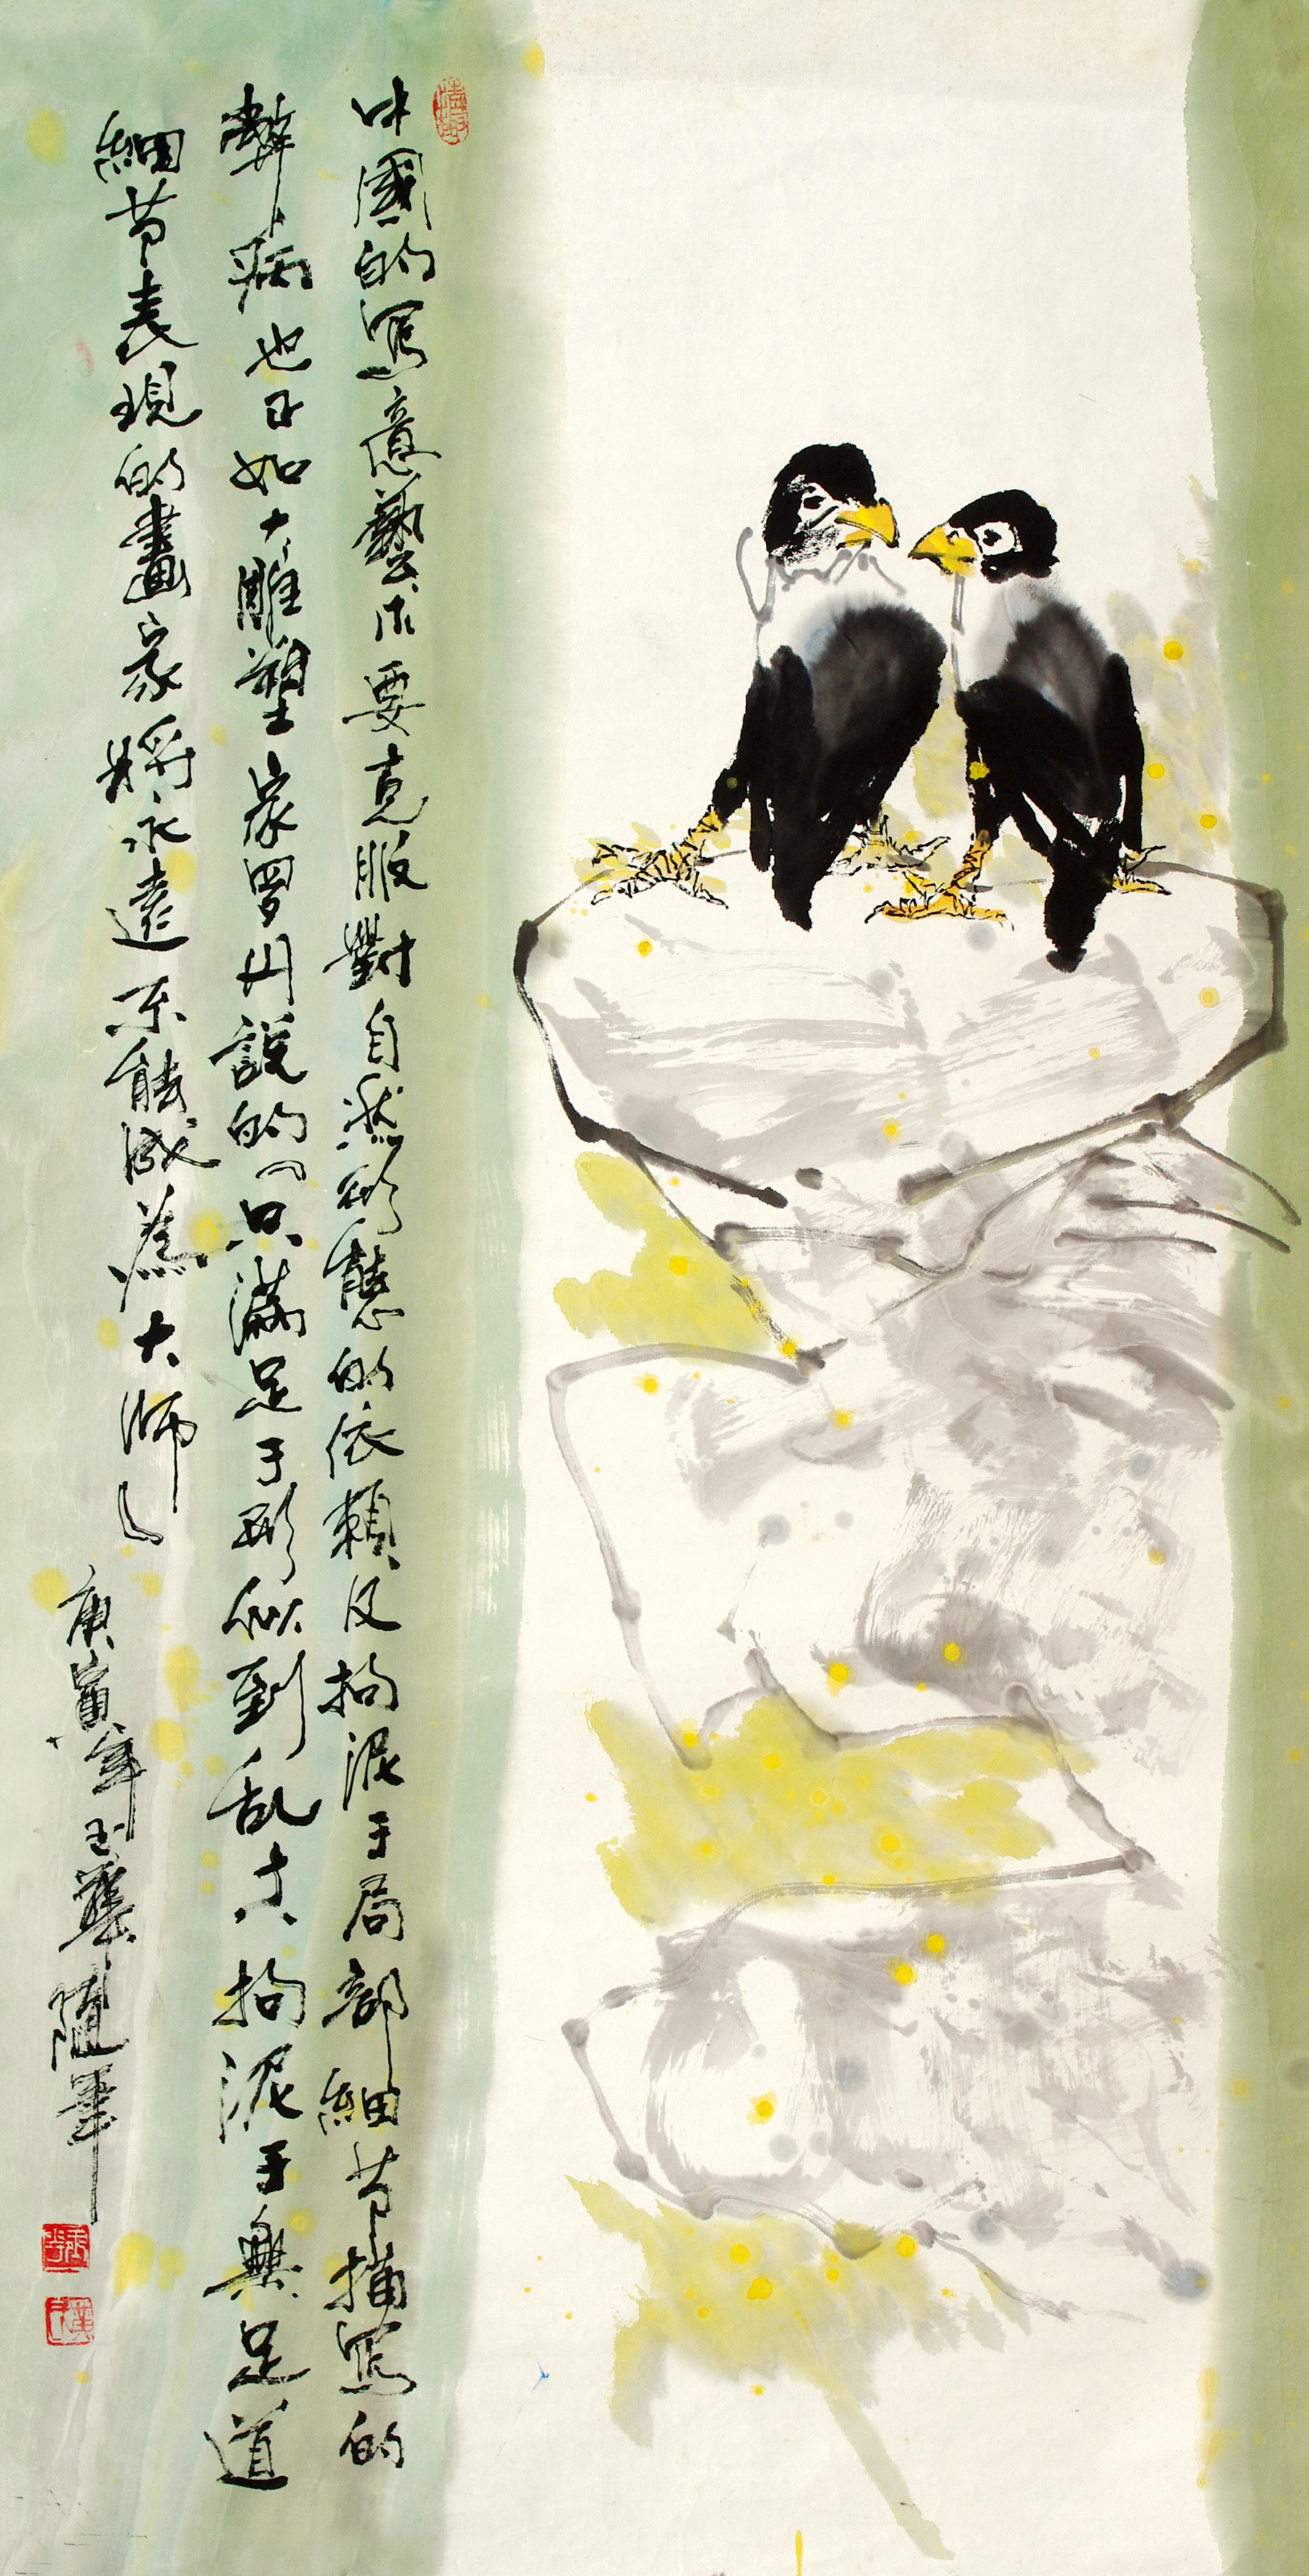 中國的写意藝术要克服對自然形態的依賴及拘泥于局部細节描写的
弊病也正如大雕塑家罗丹說的「只滿足于形似到乱真拘泥于無足道
細节表現的畫家將永遠不能成為大师」
庚寅年玉華随筆